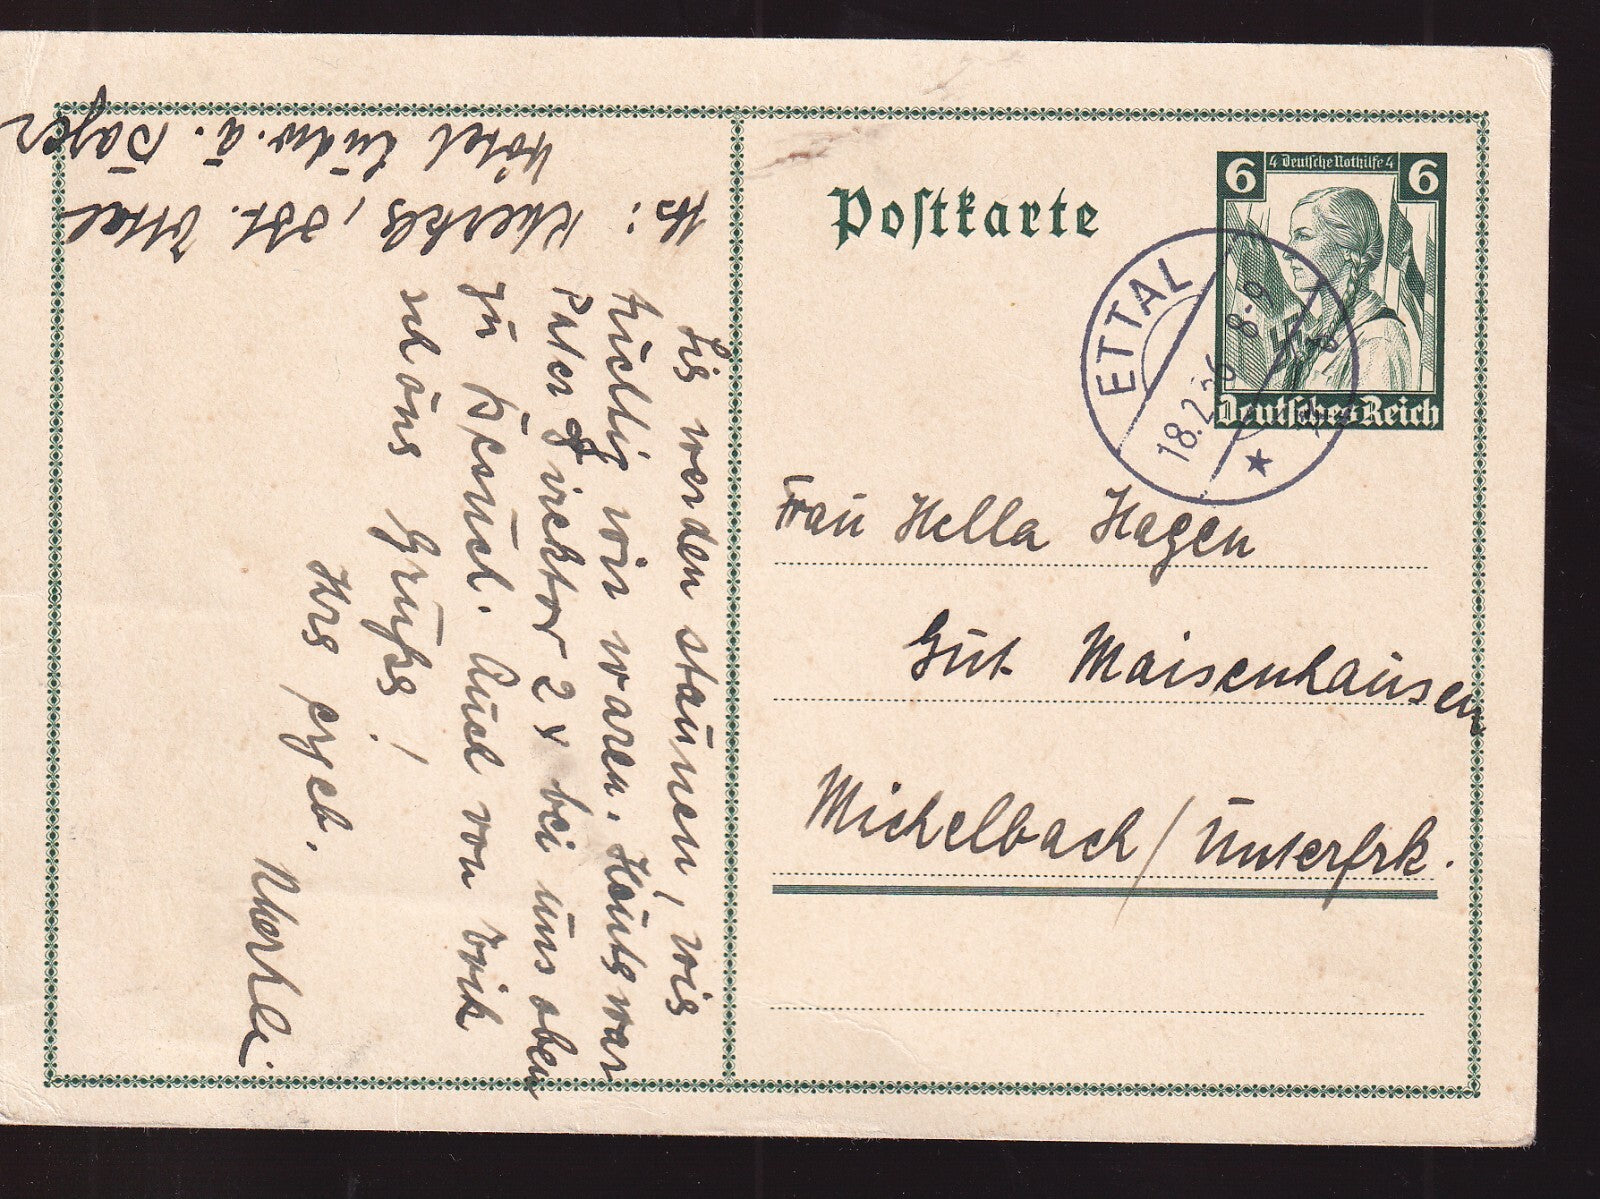 Postkarte
6 4 Deutsche Nothilfe 4 6
Deutsches Reich
ETTAL
18.2.36 8-9
Frau Hella Hagen
Gut Maisenhausen
Michelbach / Unterfrk.
Ettal
Hotel Ludw. d. Bayer
Sie werden staunen, wie
fleißig wir waren. Heute war
Pater Direktor 2 x bei uns oben
zu Besuch. Auch von
schöne Grüße!
Ihre ergeb.